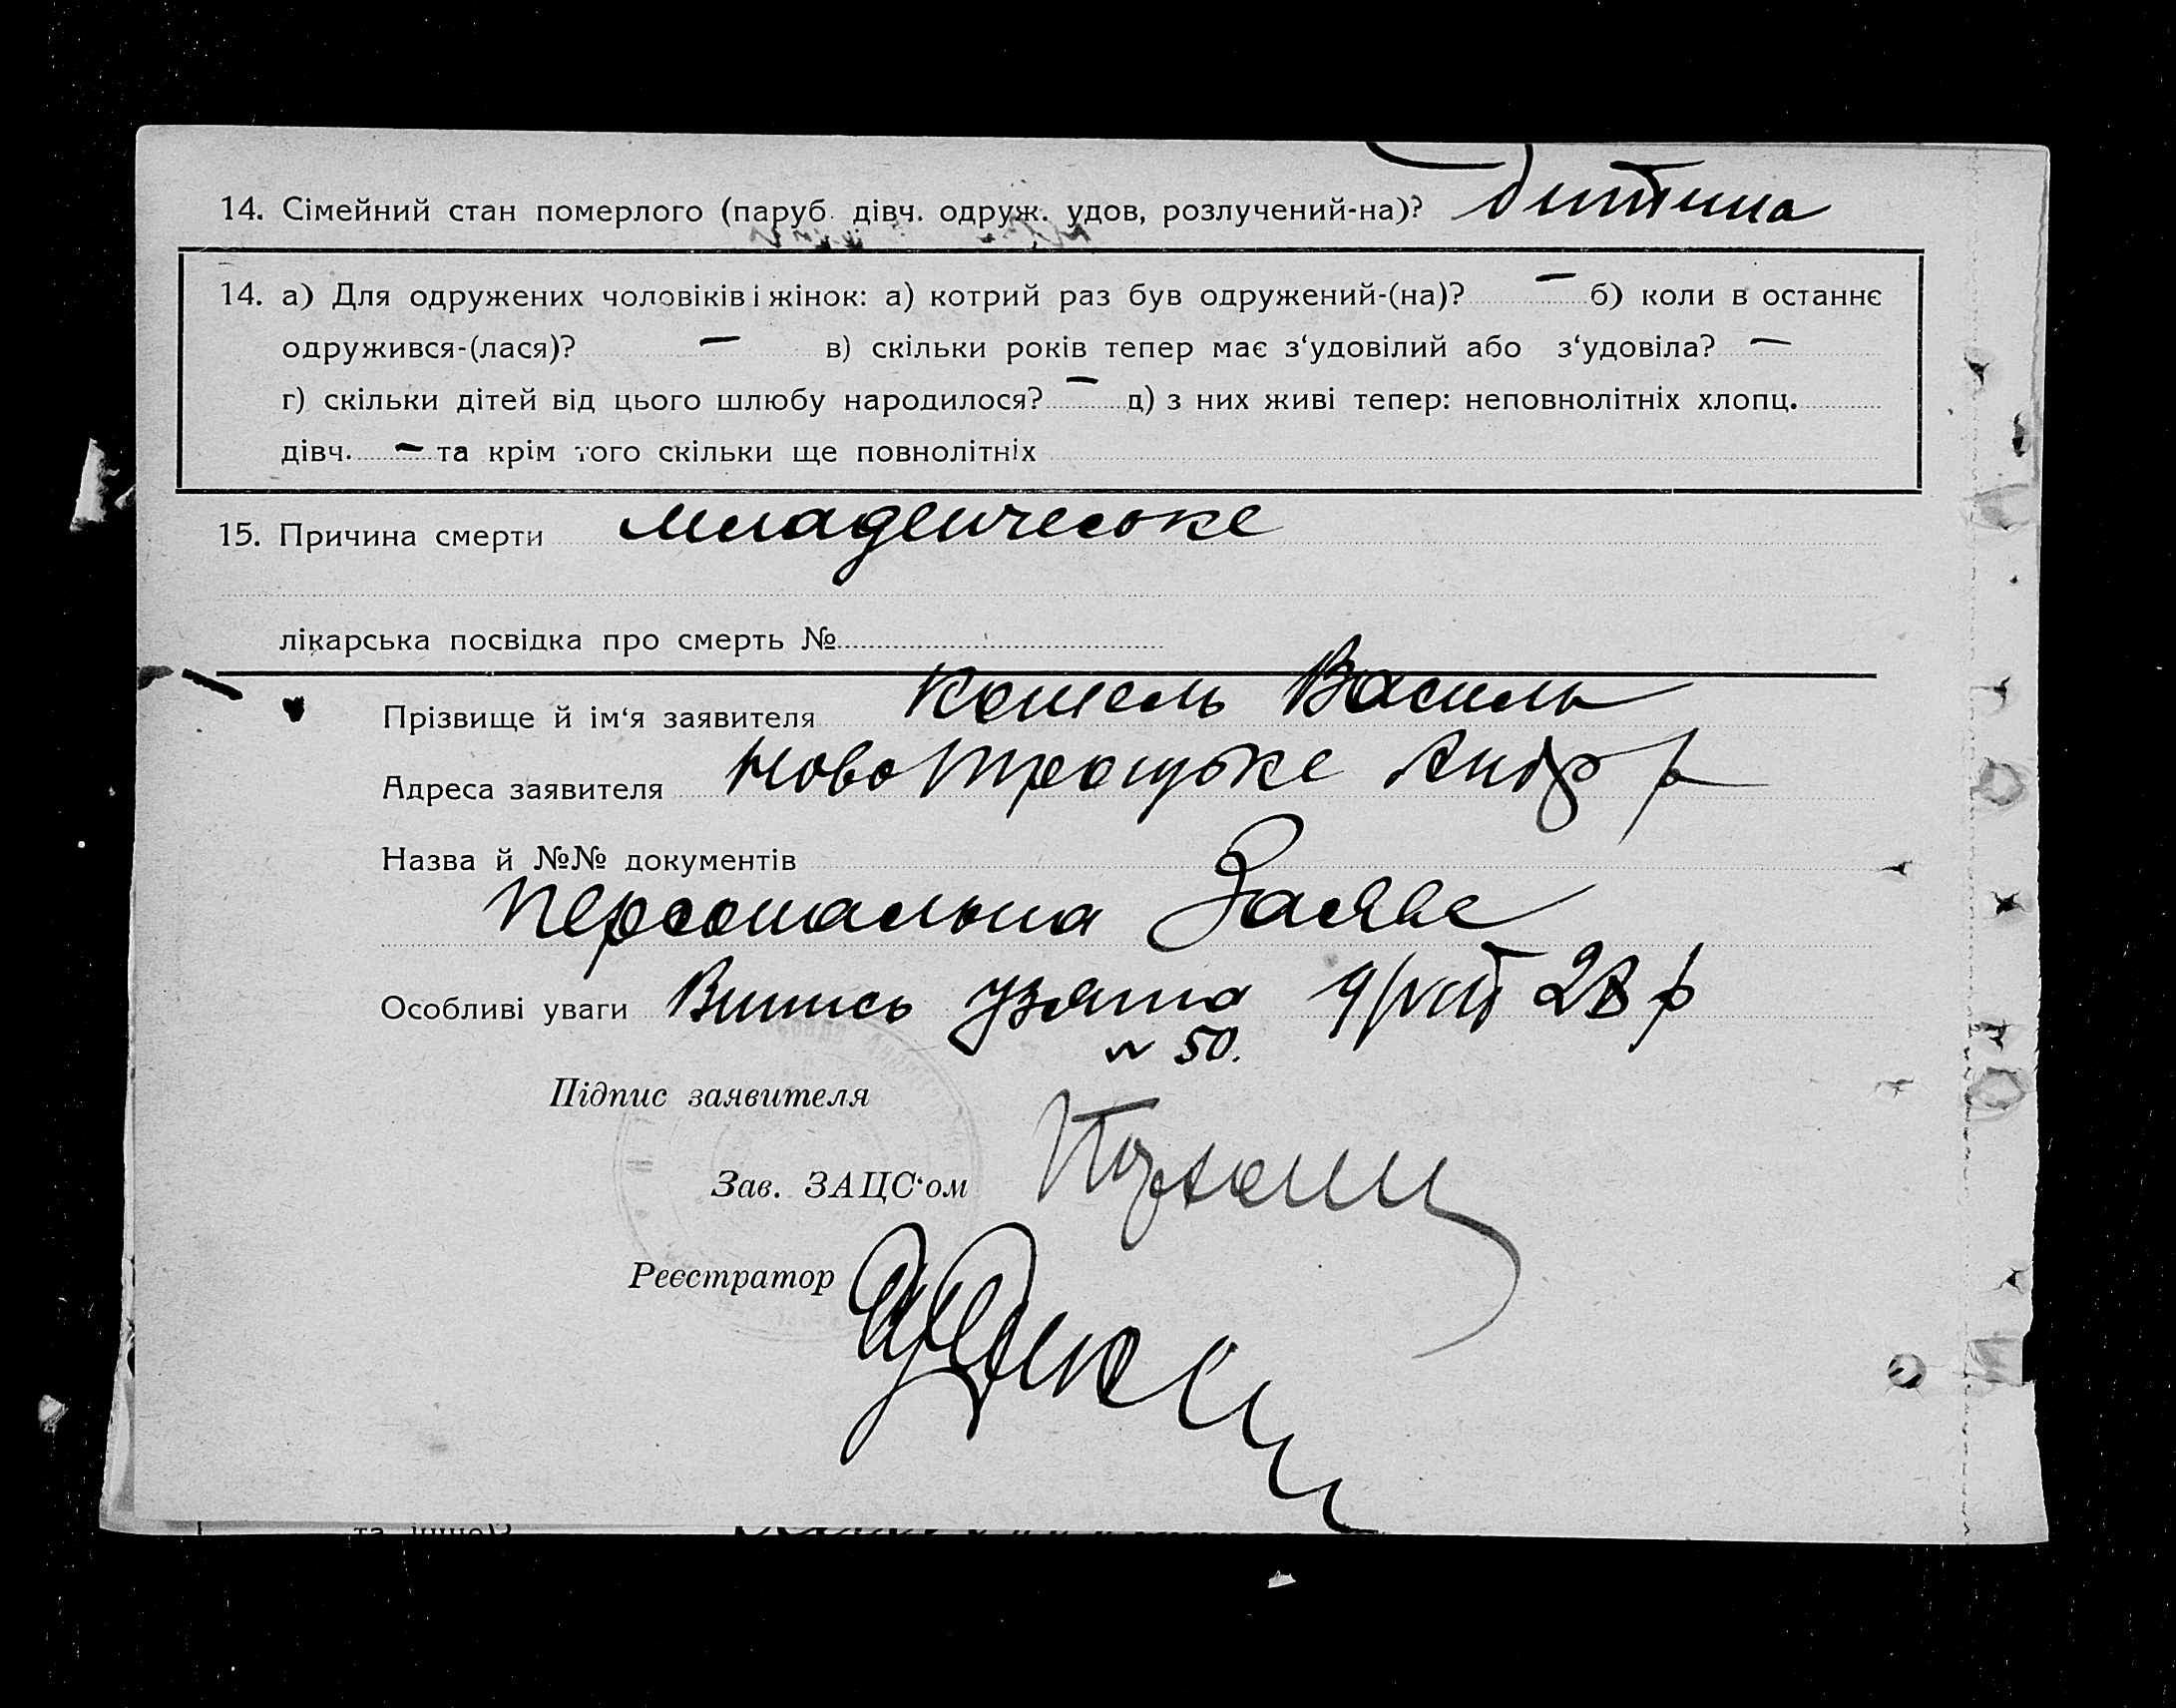 14. Сімейний стан померлого (паруб. дівч. одруж. удов, розлучений-на)? дитина
14. а) Для одружених чоловіків і жінок: а) котрий раз був одружений-(на)? — б) коли в останнє
одружився-(лася)? — в) скільки років тепер має з‘удовілий або з‘удовіла? —
г) скільки дітей від цього шлюбу народилося? — д) з них живі тепер: неповнолітніх хлопц.
дівч. — та крім того скільки ще повнолітніх
15. Причина смерти младенческе
лікарська посвідка про смерть №
Прізвище й ім‘я заявителя Василь
Адреса заявителя Ново Троцьке Андр р
Назва й №№ документів
Персональна Заява
Особливі уваги Випись узята 9/VIII 28 р
№ 50.
Підпис заявителя
Зав. ЗАЦС‘ом
Реєстратор